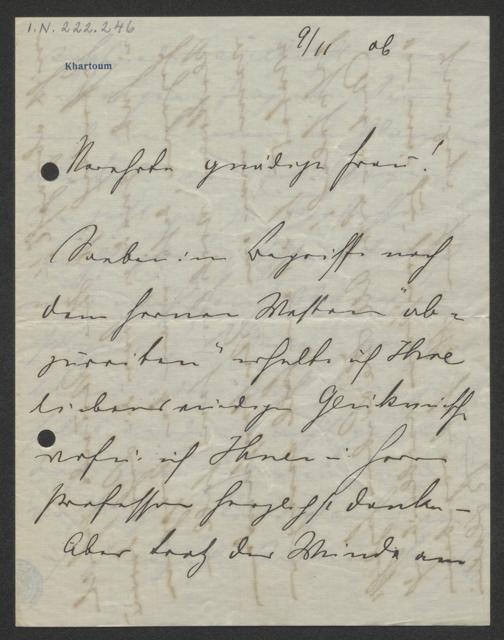 I.N. 222.246
9/11 06
Khartoum
Verehrte gnädige Frau!
Soeben im Begriffe nach
dem fernen Westen "ab-
zureiten" erhalte ich Ihre
liebenswürdigen Glückwünsche
wofür ich Ihnen u Herrn
Professor herzlichst danke –
Aber trotz der Winde am